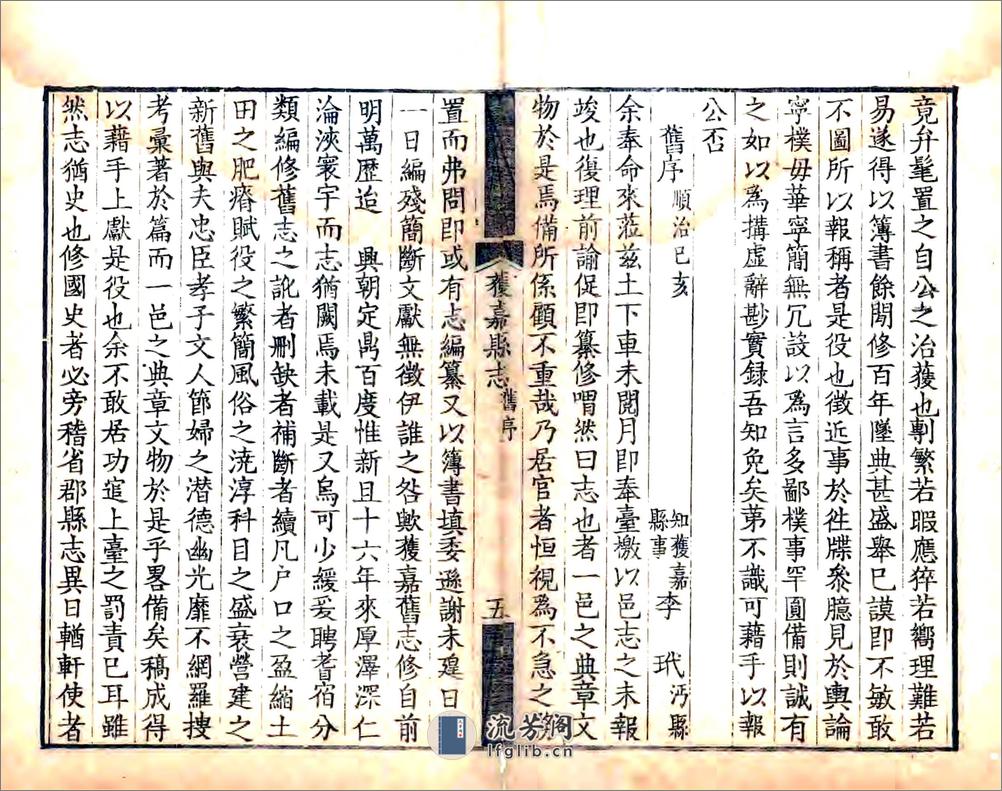 竟弁髦置之自公之治獲也剸繁若暇應猝若嚮理難若
易遂得以簿書餘閒修百年墜典甚盛舉已謨即不敏敢
不圖所以報稱者是役也徵近事於徃牒叅臆見於輿論
寧樸毋華寧簡無冗設以為言多鄙樸事罕圓備則誠有
之如以爲搆虛辭尠實録吾知免矣第不識可藉手以報
公否
舊序 順治己亥 知獲嘉縣事 李玳 沔縣
余奉命來蒞兹土下車未閱月即奉臺檄以邑志之未報
竣也復理前諭促即纂修喟然曰志也者一邑之典章文
物於是焉備所係顧不重哉乃居官者恒視為不急之務
獲嘉縣志 舊序 五
置而弗問即或有志編纂又以簿書填委遜謝未遑日復
一日編殘簡斷文獻無徵伊誰之咎歟獲嘉舊志修自前
明萬歷迨 興朝定鼎百度惟新且十六年來厚澤深仁
淪浹寰宇而志猶闕焉未載是又烏可少緩爰聘耆宿分
類編修舊志之訛者刪缺者補斷者續凡户口之盈縮土
田之肥瘠賦役之繁簡風俗之澆淳科目之盛衰營建之
新舊與夫忠臣孝子文人節婦之潜德幽光靡不網羅搜
考彙著於篇而一邑之典章文物於是乎畧備矣稿成得
以藉手上獻是役也余不敢居功寛上臺之罰責已耳雖
然志猶史也修國史者必旁稽省郡縣志異日輶軒使者
流芳閣
lfglib.cn